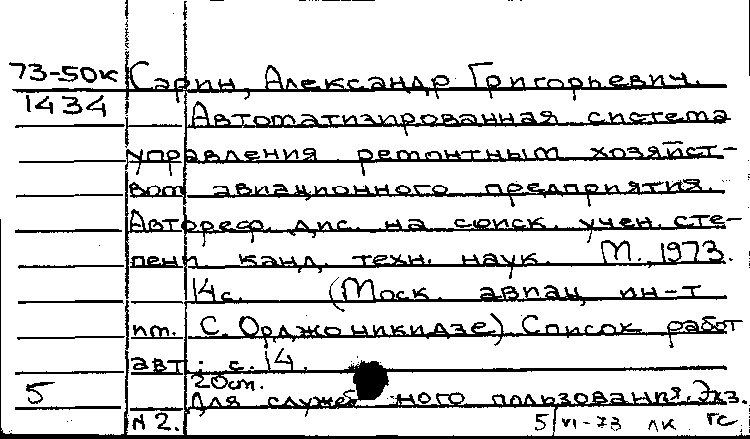 73-50к Сарин, Александр Григорьевич.
1434 Автоматизированная система
управления ремонтным хозяйст-
вом авиационного предприятия.
Автореф. дис. на соиск. учен. сте-
пени канд. техн. наук. М., 1973.
14с. (Моск. авиац. ин-т
им. С. Орджоникидзе). Список работ
авт.: с. 14.
20см.
5 Для служебного пользования. Экз.
N 2. 5/VI-73 ЛК ГС